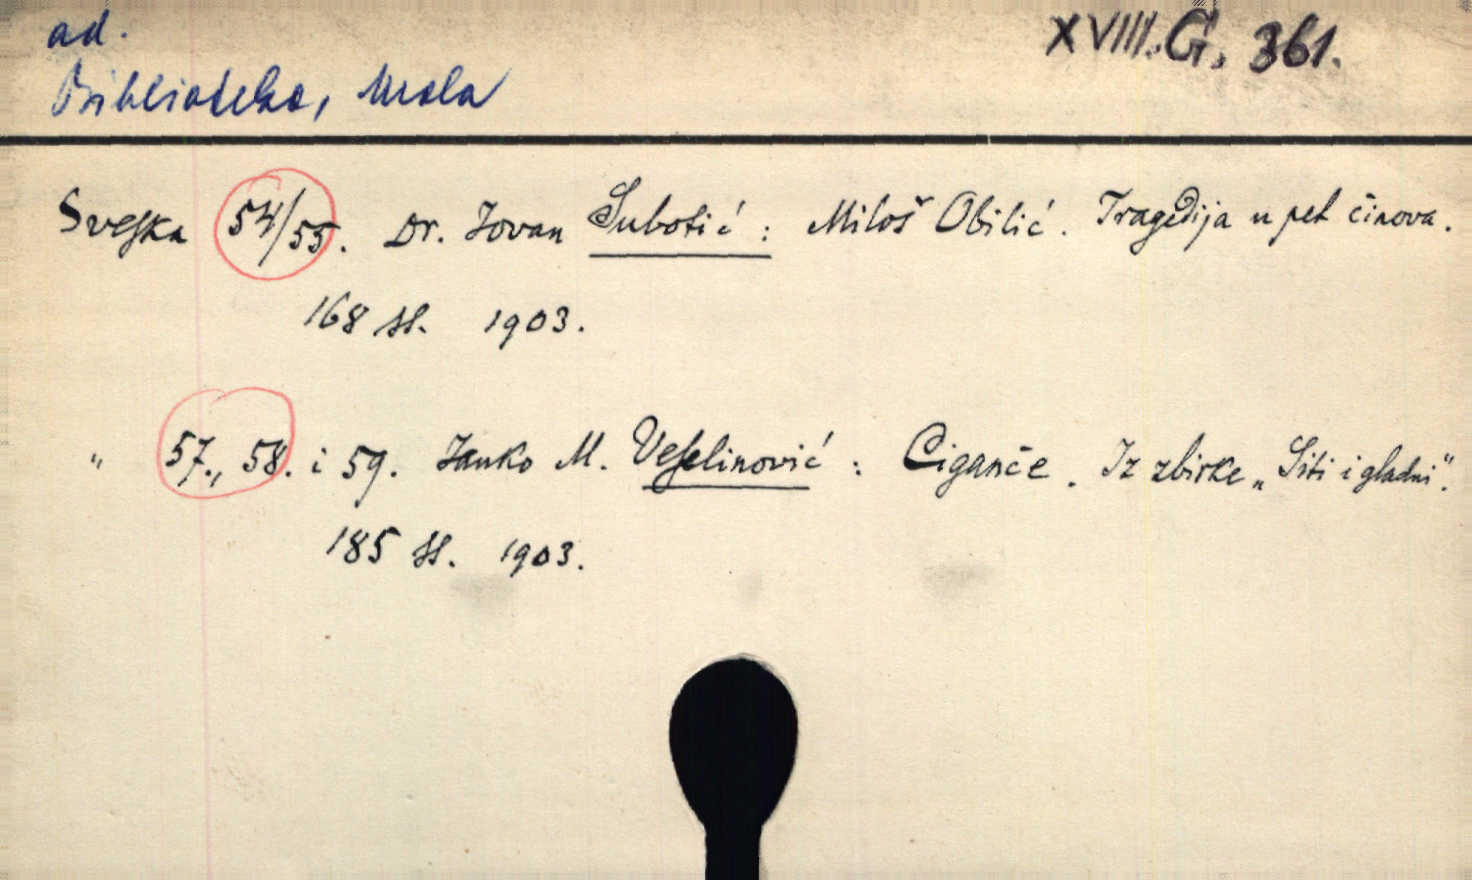 ad.
XVIII. G, 361.
Biblioteka, Mala
Sveska 54/55. Dr. Jovan Subotić : Miloš Obilić. Tragedija u pet činova.
168 st. 1903.
" 57., 58. i 59. Janko M. Veselinović : Ciganče. Iz zbirke „Siti i gladni".
185 st. 1903.